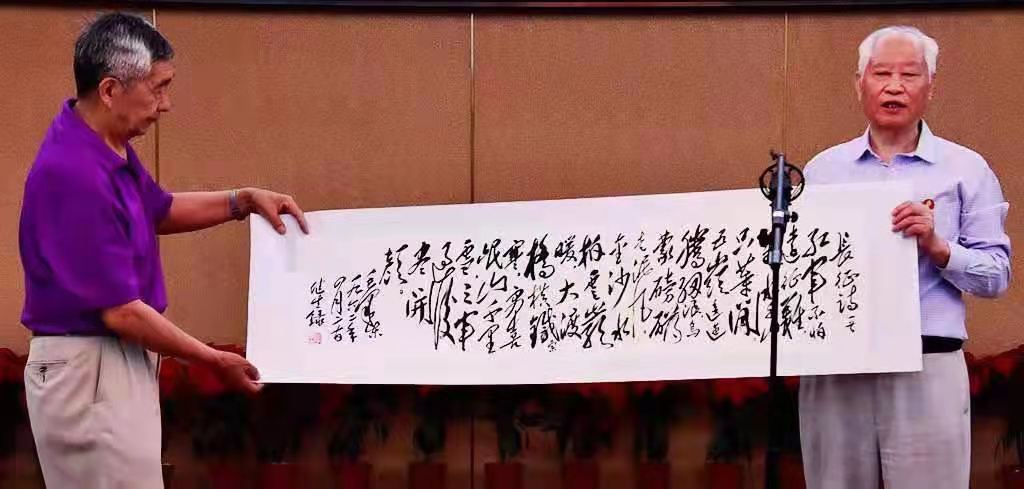 長征詩
紅軍不怕
遠征難
只等閒
五嶺逶迤
騰細浪烏
蒙磅礴
走泥丸
金沙水
拍雲巖
暖大渡
橋橫鐵索
寒更喜
岷山千里
雪三軍
過後
盡開
顏